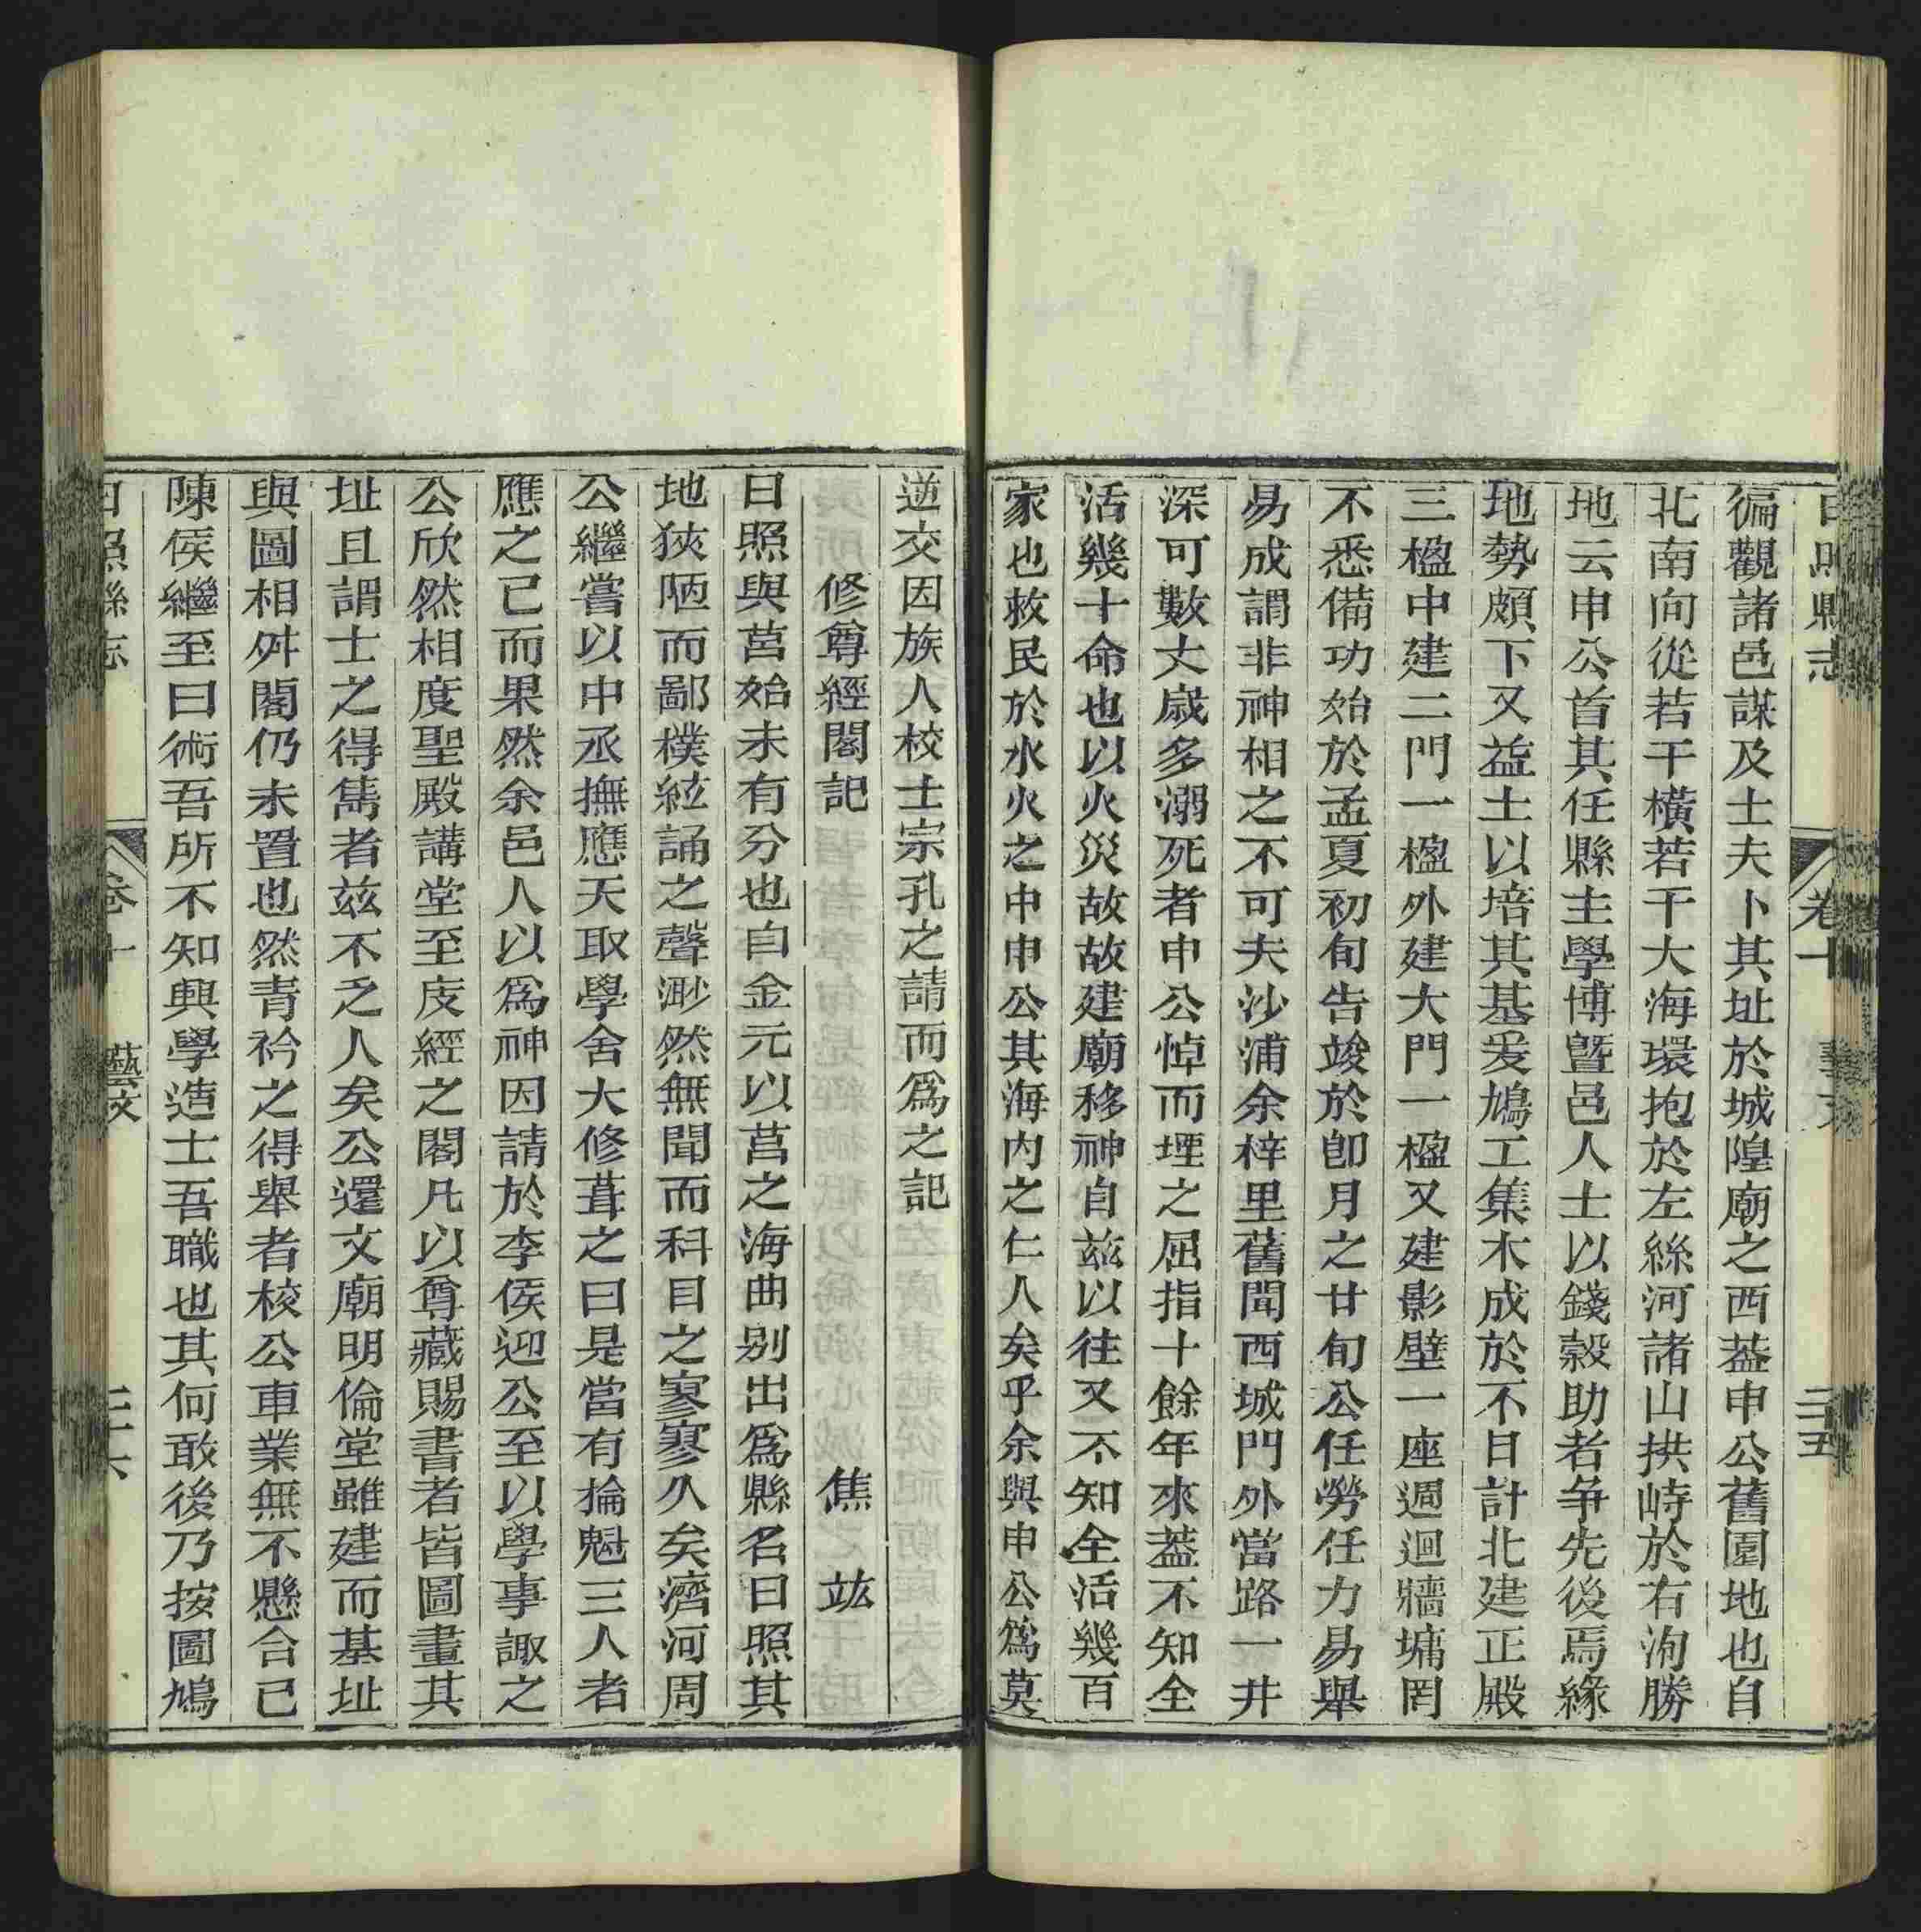 日照縣志 卷十 藝文 三十五
徧觀諸邑謀及士夫卜其址於城隍廟之西葢申公舊園地也自
北南向從若干橫若干大海環抱於左絲河諸山拱峙於右洵勝
地云申公首其任縣主學博曁邑人士以錢穀助者争先後焉緣
地勢頗下又益土以培其基爰鳩工集木成於不日計北建正殿
三楹中建二門一楹外建大門一楹又建影壁一座週迴牆墉罔
不悉備功始於孟夏初旬告竣於卽月之廿旬公任勞任力易舉
易成謂非神相之不可夫沙浦余梓里舊聞西城門外當路一井
深可數丈歲多溺死者申公悼而堙之屈指十餘年來葢不知全
活幾十命也以火災故故建廟移神自兹以往又不知全活幾百
家也救民於水火之中申公其海内之仁人矣乎余與申公爲莫
逆交因族人校士宗孔之請而爲之記
修尊經閣記 焦竑
日照與莒始未有分也自金元以莒之海曲别出爲縣名日照其
地狹陋而鄙樸絃誦之聲渺然無聞而科目之寥寥久矣濟河周
公繼嘗以中丞撫應天取學舍大修葺之曰是當有掄魁三人者
應之已而果然余邑人以爲神因請於李侯迎公至以學事諏之
公欣然相度聖殿講堂至庋經之閣凡以尊藏賜書者皆圖畫其
址且謂士之得雋者兹不乏人矣公還文廟明倫堂雖建而基址
與圖相舛閣仍未置也然青衿之得舉者校公車業無不懸合已
陳侯繼至曰術吾所不知興學造士吾職也其何敢後乃按圖鳩
日照縣志 卷十 藝文 三十六